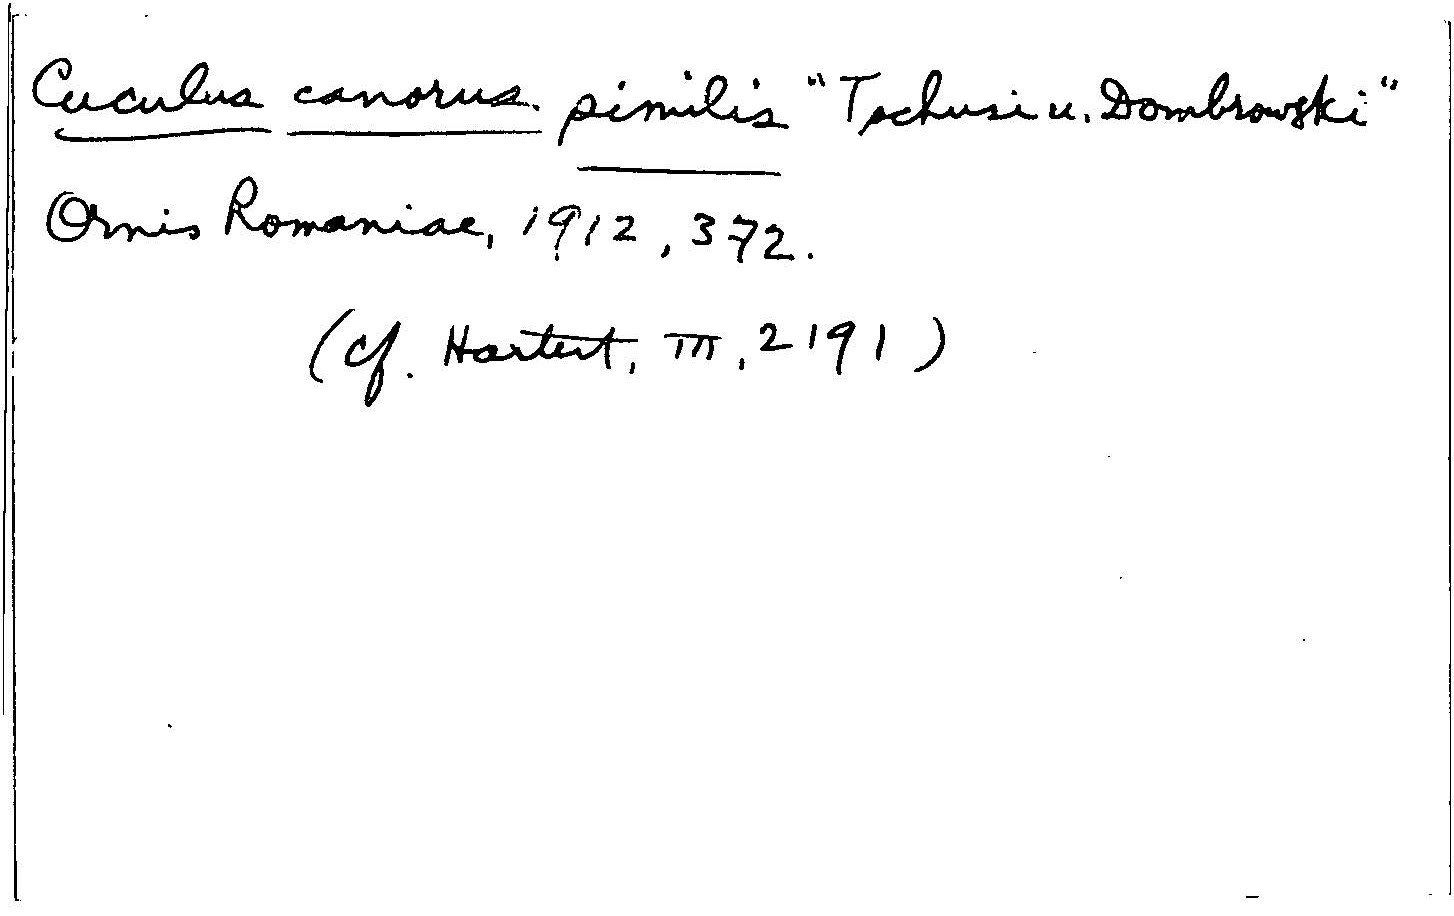 Cuculus canorus. similis "Tschusi u. Dombrowski"
Ornis Romaniae, 1912, 372.
(cf. Hartert, III, 2191)